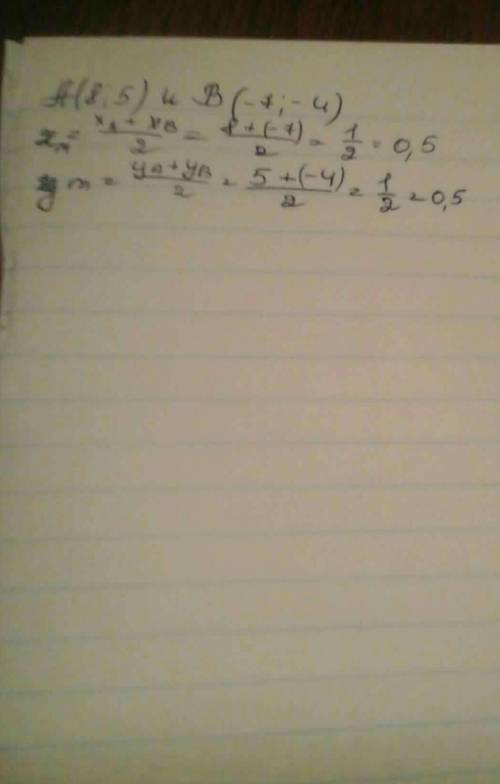 A(8; 5) и B(-7; -4)
xm = xA + xB / 2 = 8 + (-7) / 2 = 1/2 = 0,5
ym = yA + yB / 2 = 5 + (-4) / 2 = 1/2 = 0,5